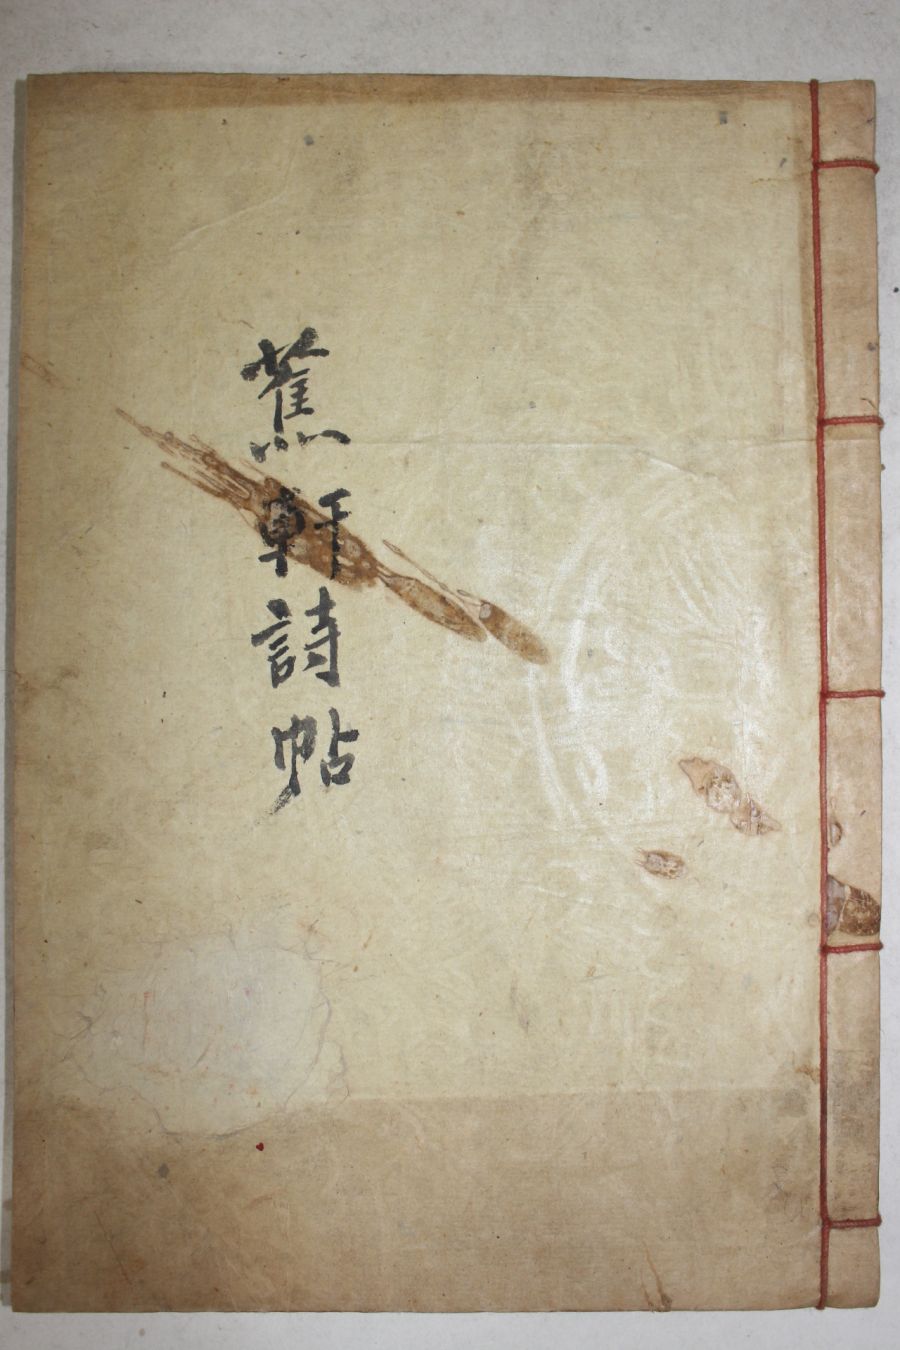 蕉軒詩帖